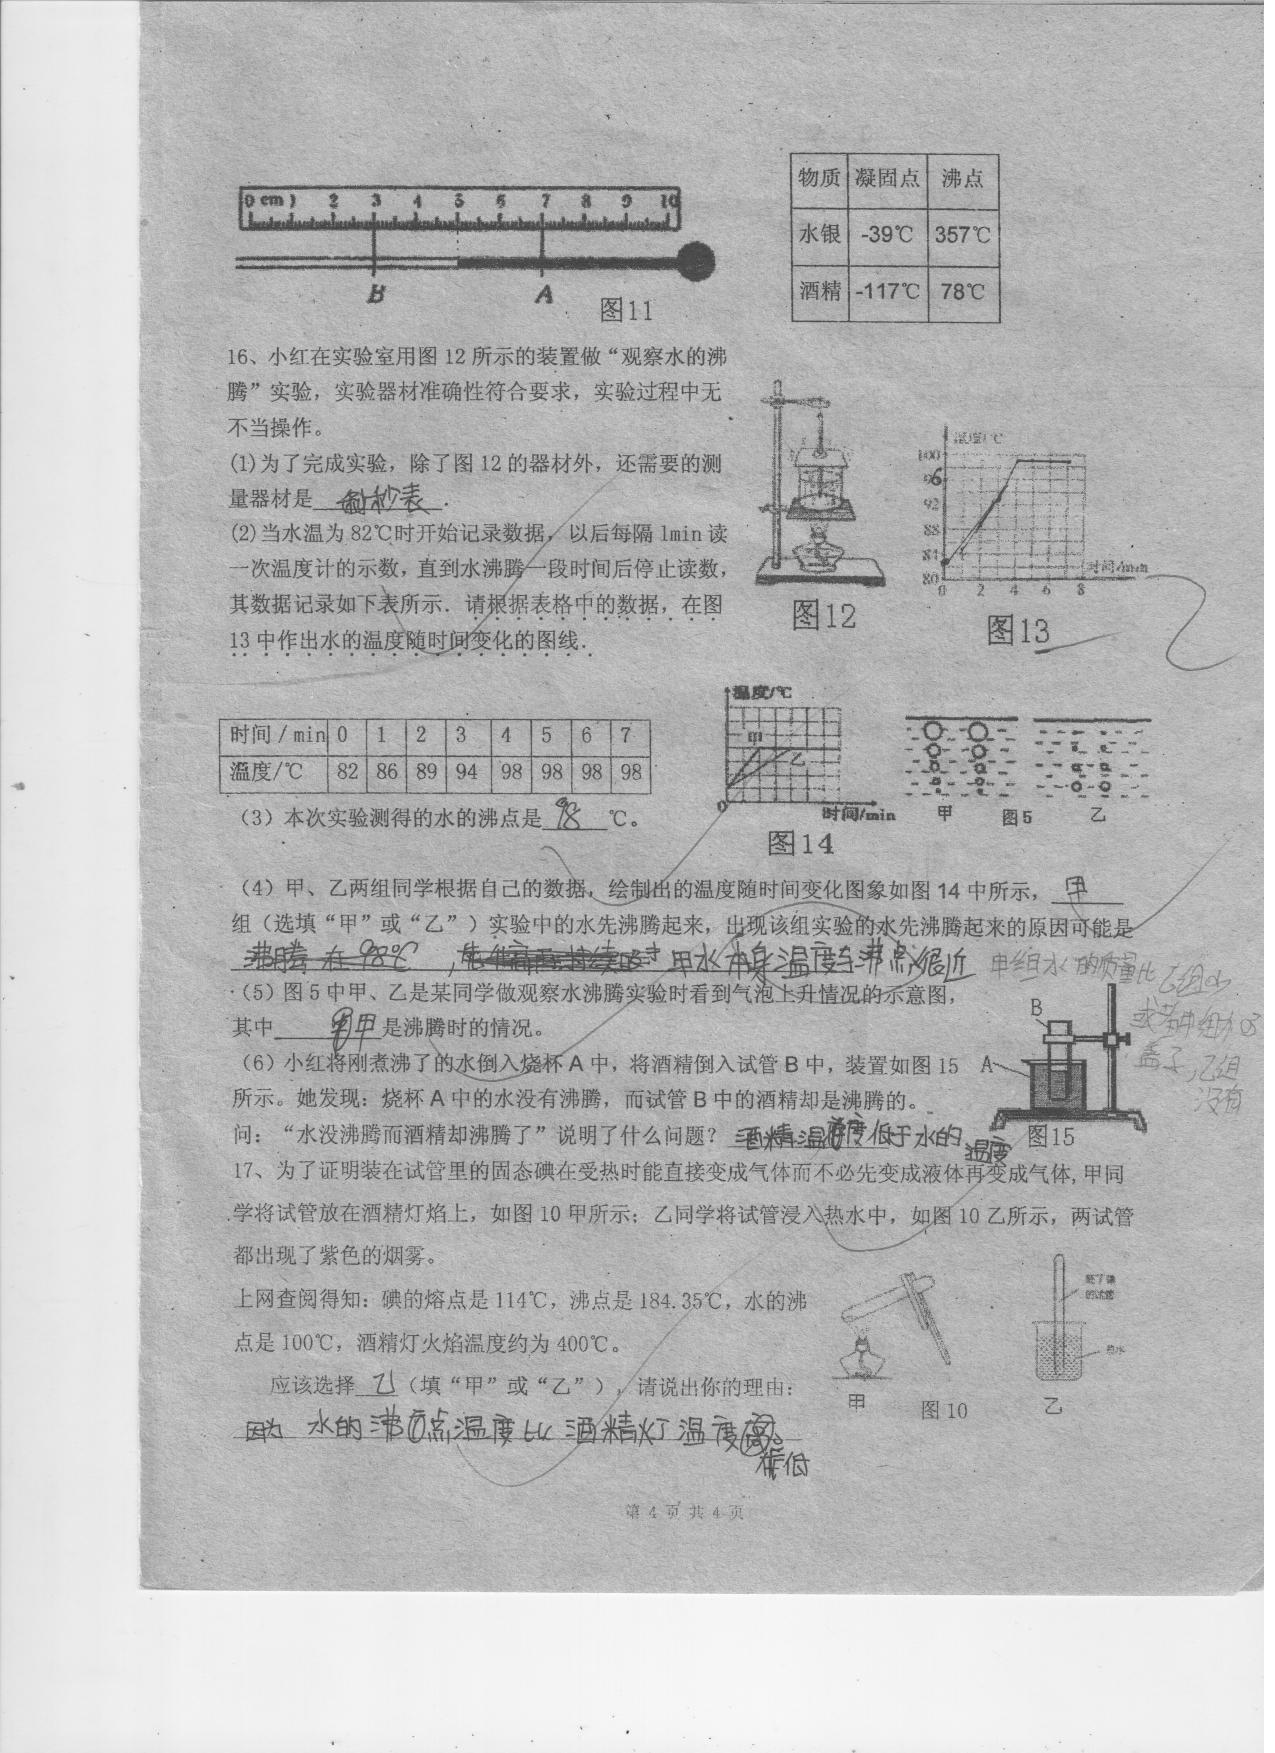 0 cm 1 2 3 4 5 6 7 8 9 10
B A
图11
物质 凝固点 沸点
水银 -39℃ 357℃
酒精 -117℃ 78℃
16、小红在实验室用图 12 所示的装置做“观察水的沸
腾”实验，实验器材准确性符合要求，实验过程中无
不当操作。
(1)为了完成实验，除了图 12 的器材外，还需要的测
量器材是 秒表.
(2)当水温为 82℃时开始记录数据，以后每隔 1min 读
一次温度计的示数，直到水沸腾一段时间后停止读数，
其数据记录如下表所示．请根据表格中的数据，在图
13 中作出水的温度随时间变化的图线．
图12
温度/℃
100
96
92
88
84
80
0 2 4 6 8
时间/min
图13
时间／min 0 1 2 3 4 5 6 7
温度/℃ 82 86 89 94 98 98 98 98
温度/℃
甲
乙
0
时间/min
图14
甲 图5 乙
（3）本次实验测得的水的沸点是 98 ℃。
（4）甲、乙两组同学根据自己的数据，绘制出的温度随时间变化图象如图 14 中所示， 甲
组（选填“甲”或“乙”）实验中的水先沸腾起来，出现该组实验的水先沸腾起来的原因可能是
沸腾 在 98℃， 甲水本身温度与沸点很近
甲组水的质量比乙组小
盖子，乙组
没有
（5）图 5 中甲、乙是某同学做观察水沸腾实验时看到气泡上升情况的示意图，
其中 甲 是沸腾时的情况。
（6）小红将刚煮沸了的水倒入烧杯 A 中，将酒精倒入试管 B 中，装置如图 15
所示。她发现：烧杯 A 中的水没有沸腾，而试管 B 中的酒精却是沸腾的。
问：“水没沸腾而酒精却沸腾了”说明了什么问题？ 酒精温度低于水的温度
B
A
图15
17、为了证明装在试管里的固态碘在受热时能直接变成气体而不必先变成液体再变成气体,甲同
学将试管放在酒精灯焰上，如图 10 甲所示；乙同学将试管浸入热水中，如图 10 乙所示，两试管
都出现了紫色的烟雾。
上网查阅得知：碘的熔点是 114℃，沸点是 184.35℃，水的沸
点是 100℃，酒精灯火焰温度约为 400℃。
应该选择 乙 （填“甲”或“乙”），请说出你的理由：
因为 水的沸点温度比酒精灯温度低
装了碘
的试管
热水
甲 图10 乙
第 4 页 共 4 页